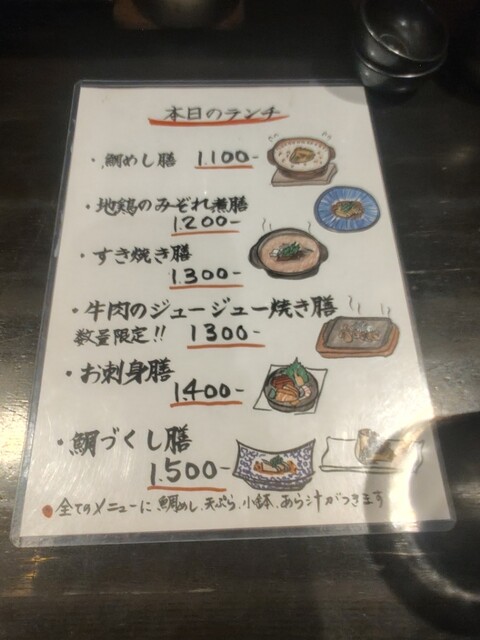 本日のランチ
・鯛めし膳 1.100-
・地鶏のみぞれ煮膳
1.200-
・すき焼き膳
1.300-
・牛肉のジュージュー焼き膳
数量限定!! 1300-
・お刺身膳
1.400-
・鯛づくし膳
1.500-
●全てのメニューに鯛めし、天ぷら、小鉢、あら汁がつきます